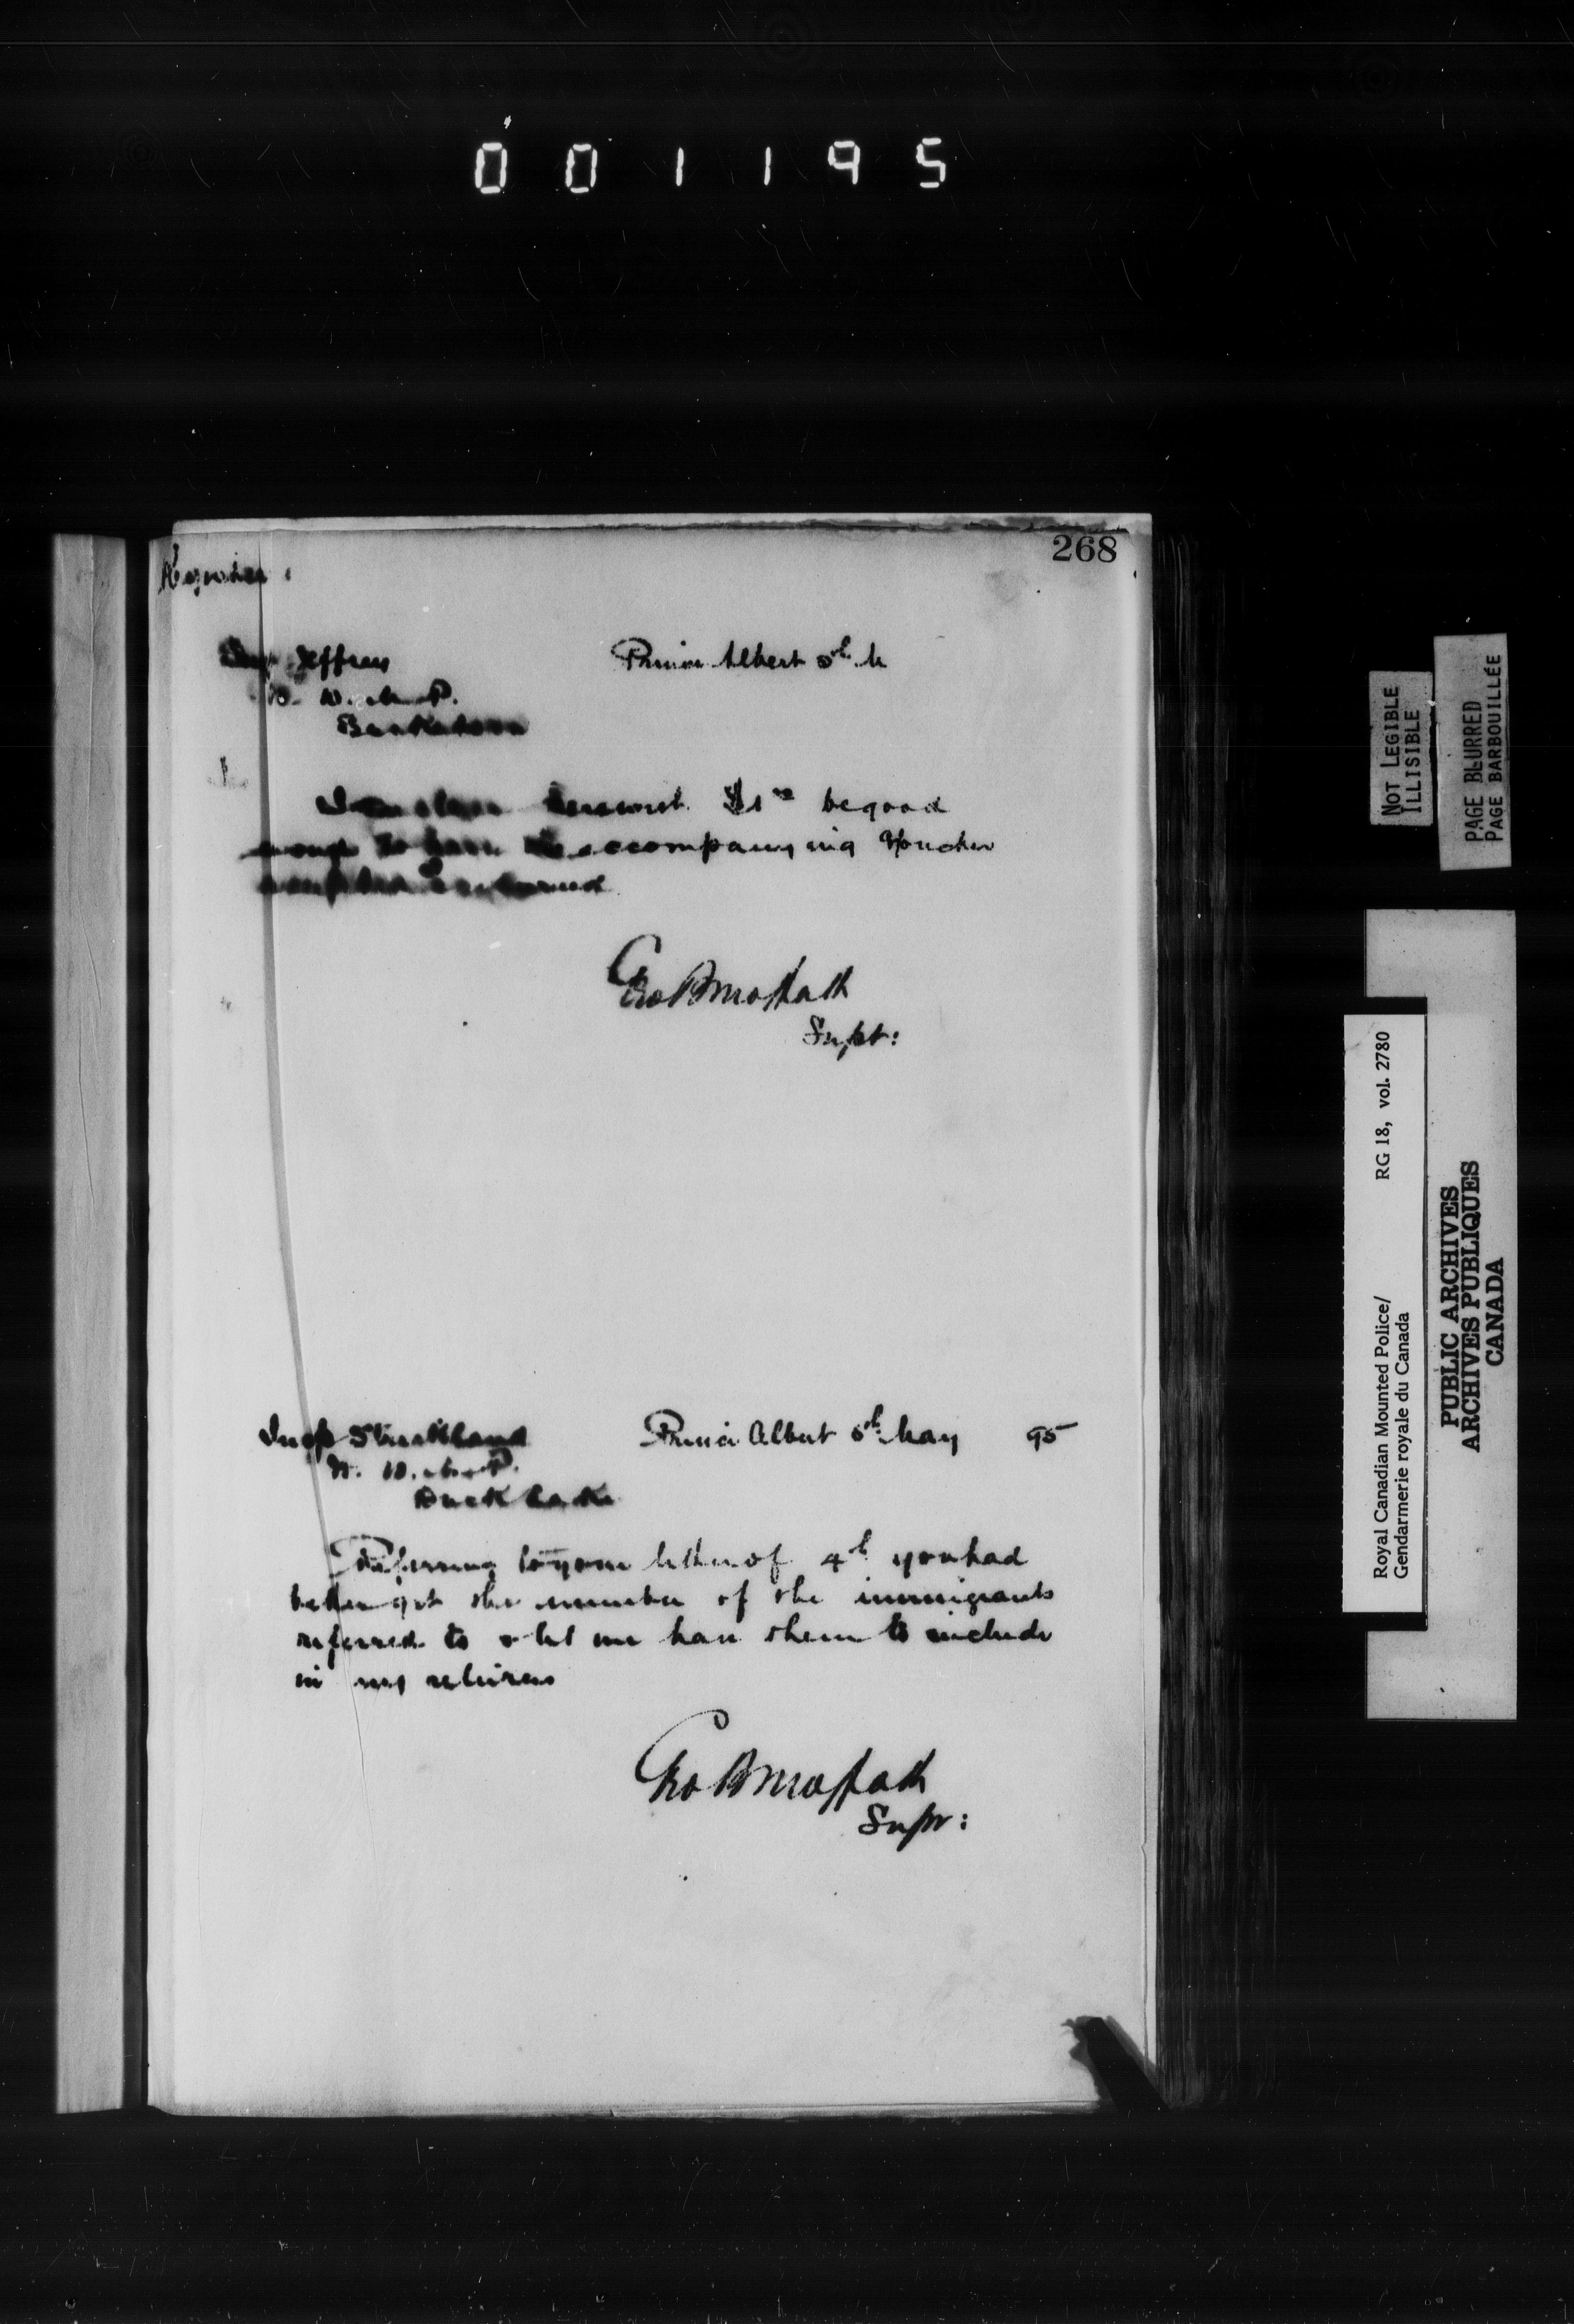 001195
268
Jeffrey
Prince Albert 5th
N. W. M. P.
Saskatoon
I enclose herewith $1 00 be good
enough to have the accompanying Voucher
returned
Geo B Moffatt
Supt:
Insp Strickland
Prince Albert 5th May 95
N. W. M. P.
Duck Lake
Referring to your letter of 4th you had
better get the number of the immigrants
referred to & let me have them to include
in my returns
Geo B Moffatt
Supt:
NOT LEGIBLE
ILLISIBLE
PAGE BLURRED
PAGE BARBOUILLÉE
Royal Canadian Mounted Police/
Gendarmerie royale du Canada
RG 18, vol. 2780
PUBLIC ARCHIVES
ARCHIVES PUBLIQUES
CANADA